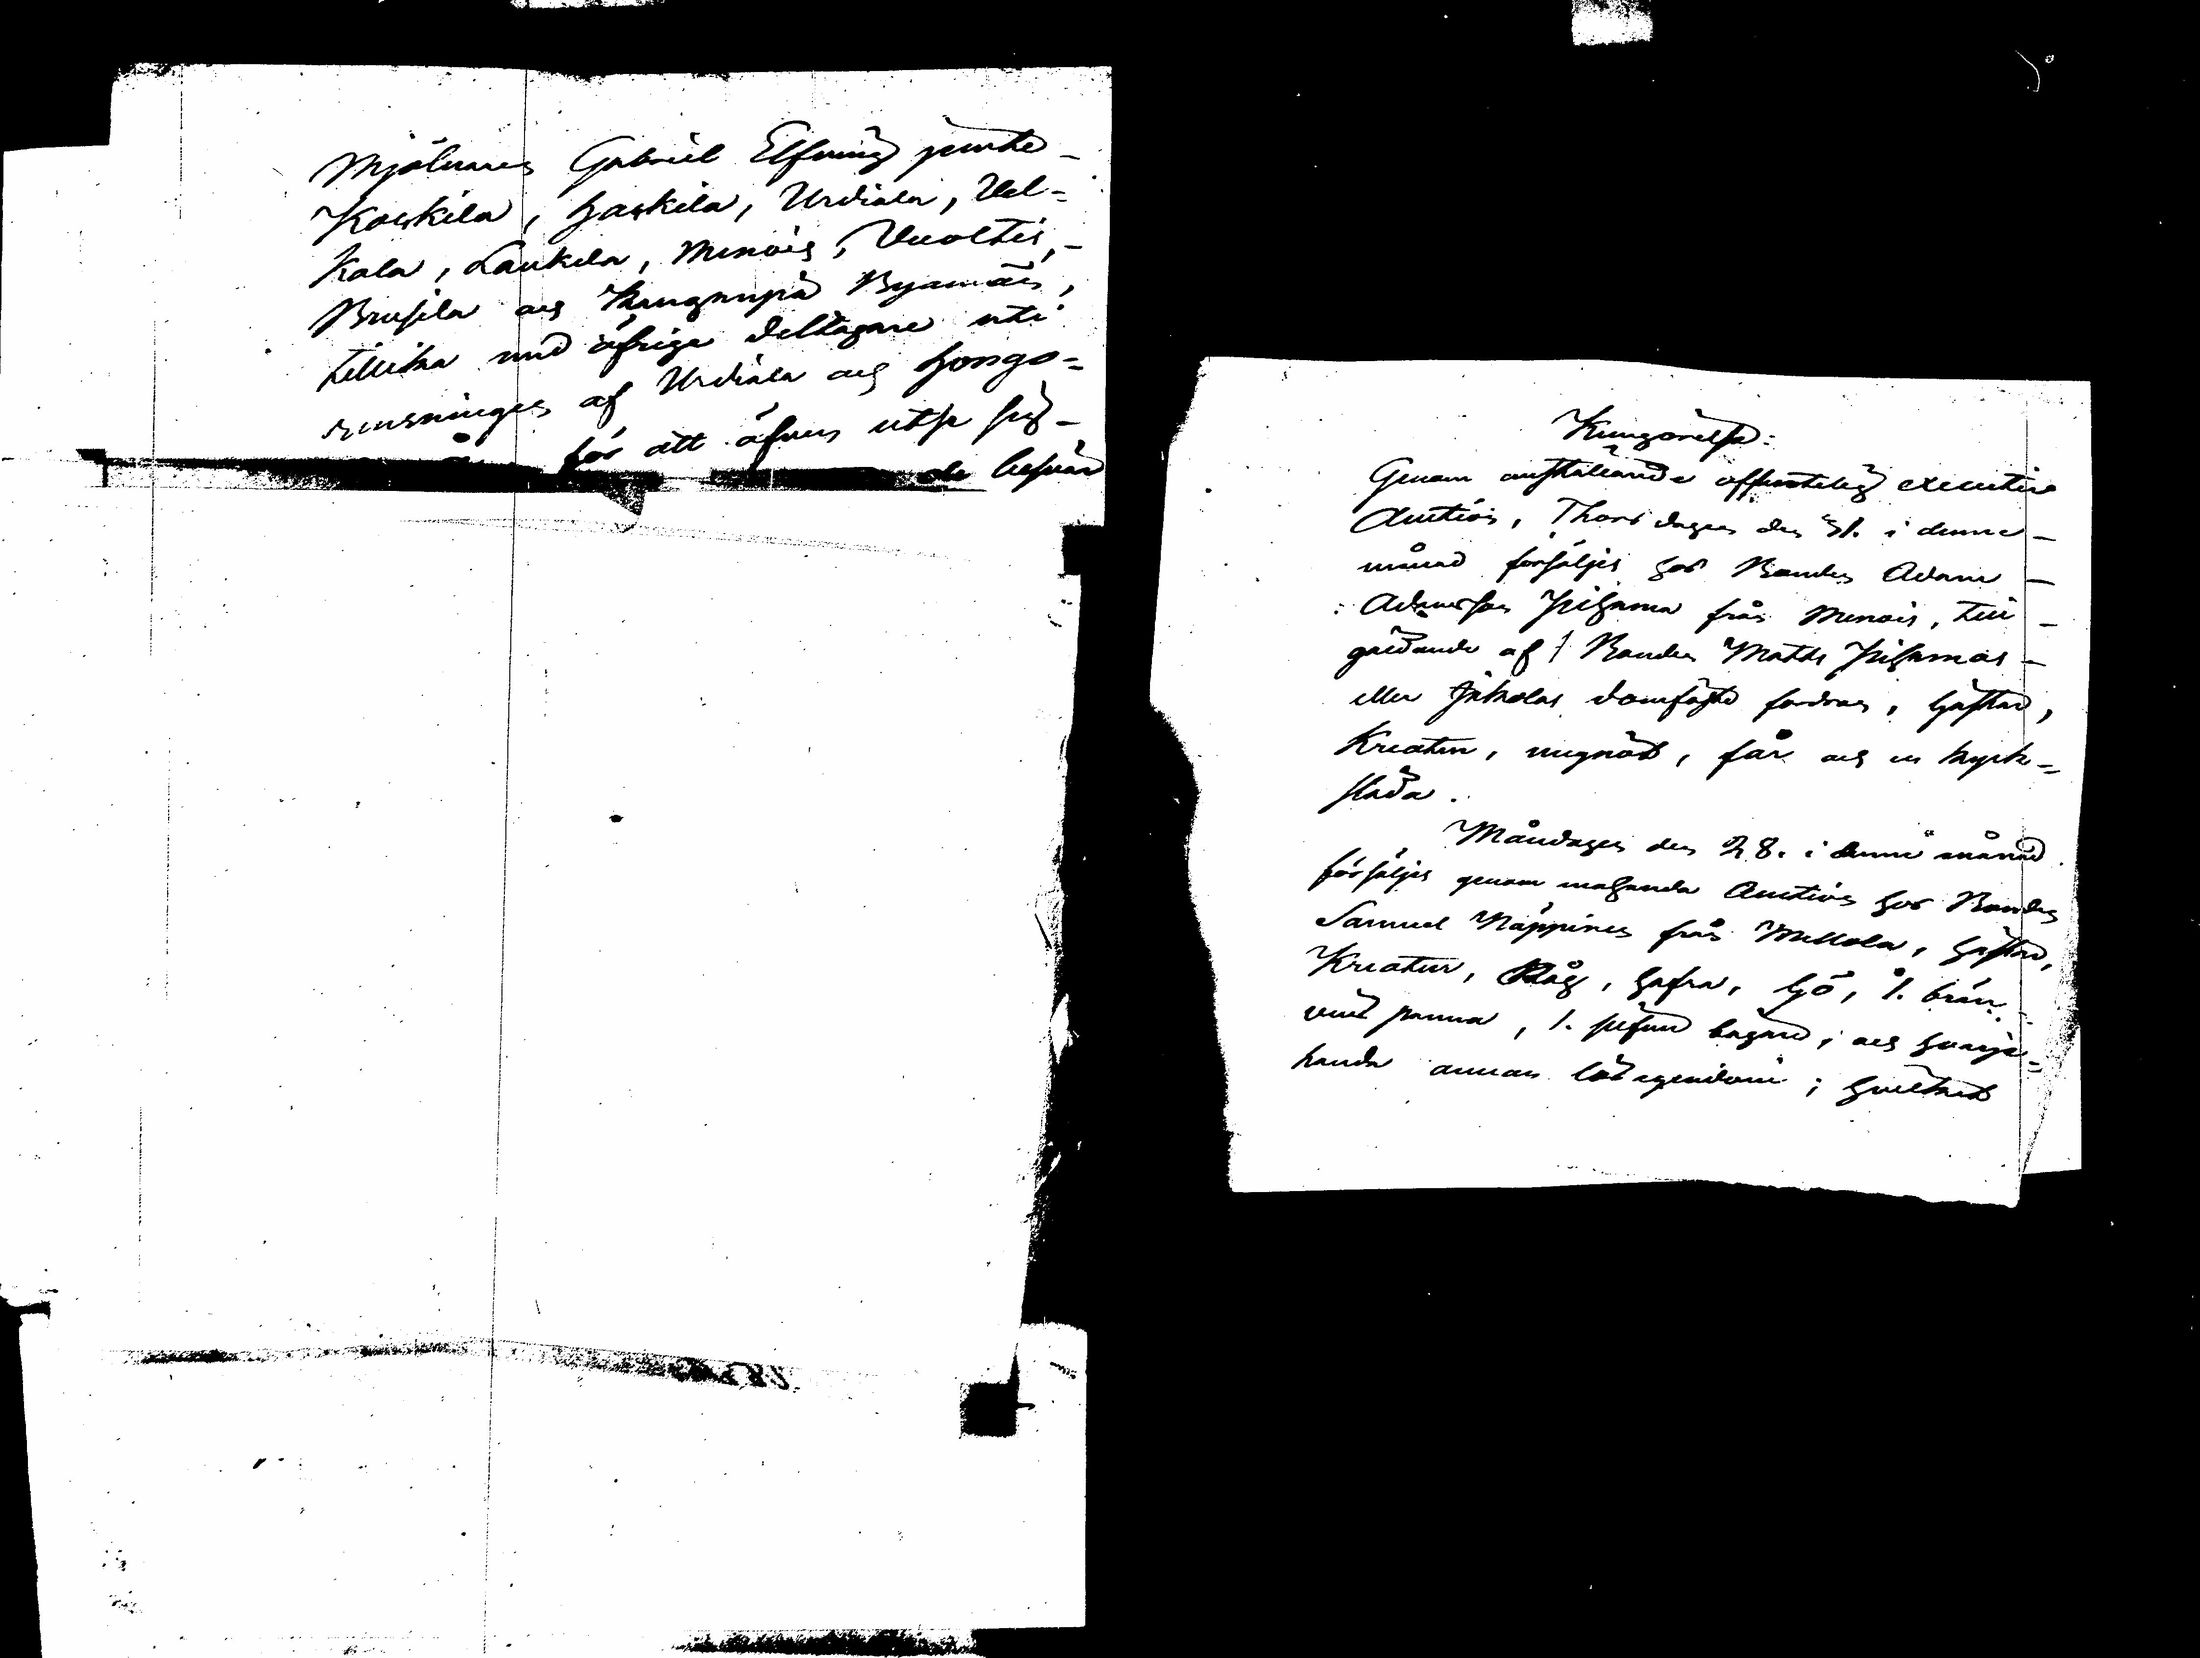 Mjölnaren Gabriel Elfving jemte
Koskila, Haskila, Urdiala, Vel-
kala, Laukela, Menois, Vuoltis,
Brusila och Kangenpä Byamän,
tillika med öfrige deltagare uti
rensningen af Urdiala och Hongo-
å för att äfven utse sig
de besvär
Kungörelse:
Genom anställande offentelig executive
Auction, Thorsdagen den 31. i denne
månad försäljes hos Bonden Adam
Adamsson Pihama från Menois, till
gäldande af Bonden Matts Pihamas
eller Jakolas domfäste fordran, Hästar,
Kreatur, ungnöt, får och en kyrk-
släda.
Måndagen den 28. i denne månad
försäljes genom enahanda Auction hos Bonden
Samuel Näppines från Mellola, hästar,
Kreatur, Råg, hafra, hö, 1. brän-
vins panna, 1. silfver bägare; och hvarje-
handa annan lösegendom; hvilket